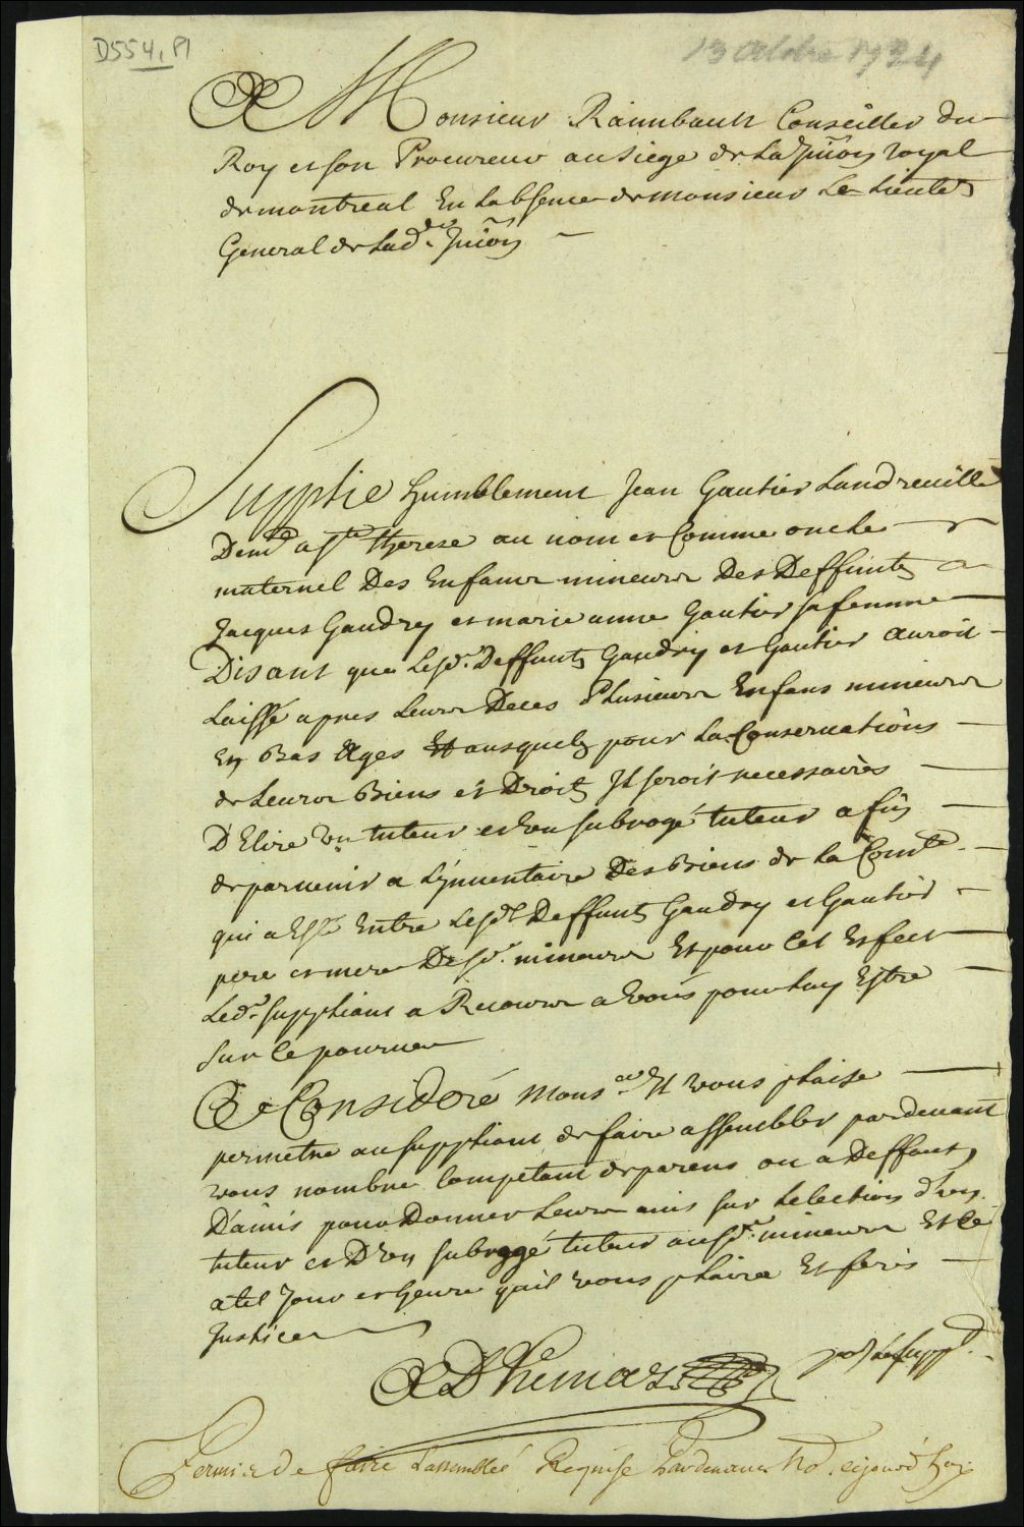 D554, P1
13 Octobre 1734
A Monsieur Raimbault Conseiller du
Roy et son Procureur au siege de La Juri.on royal
de montreal En Labsence de monsieur Le Lieute.t
General de Lad.e Juri.on
Supplie humblement Jean Gautier Landreuille
Dem.t a S.te therese au nom et Comme oncle
maternel Des Enfans mineurs Des Deffunts
Jacques Gaudry et marie anne Gautier sa femme
Disant que Lesd. Deffunts Gaudry et Gautier auroit
Laissé apres Leurs Deces Plusieurs Enfans mineurs
En Bas Ages Et ausquels pour La Conservation
de Leurs Biens et Droits Il seroit necessaires
D'Elire un tuteur et un subrogé tuteur afin
de parvenir a L'ynventaire Des Biens de La Com.té
qui a Esté Entre Lesd. Deffunts Gaudry et Gautier
pere et mere Desd. mineurs Et pour Cet Esfect
Led. suppliant a Recours a vous pour Luy Estre
sur Ce pourvu
Ce Consideré Mons.eur Il vous plaise
permetre au suppliant de faire assembler pardevant
vous nombre Competant de parens ou a Deffaut
D'amis pour Donner Leurs avis sur Lelection d'un
tuteur et D'un subroggé tuteur ausd. mineurs Et Ce
a tel Jour et heure quil vous plaira Et feres
Justice
Dhemars pour Le supp.t
Permis de faire L'assemblée Requise Pardevant No. aujourd'huy